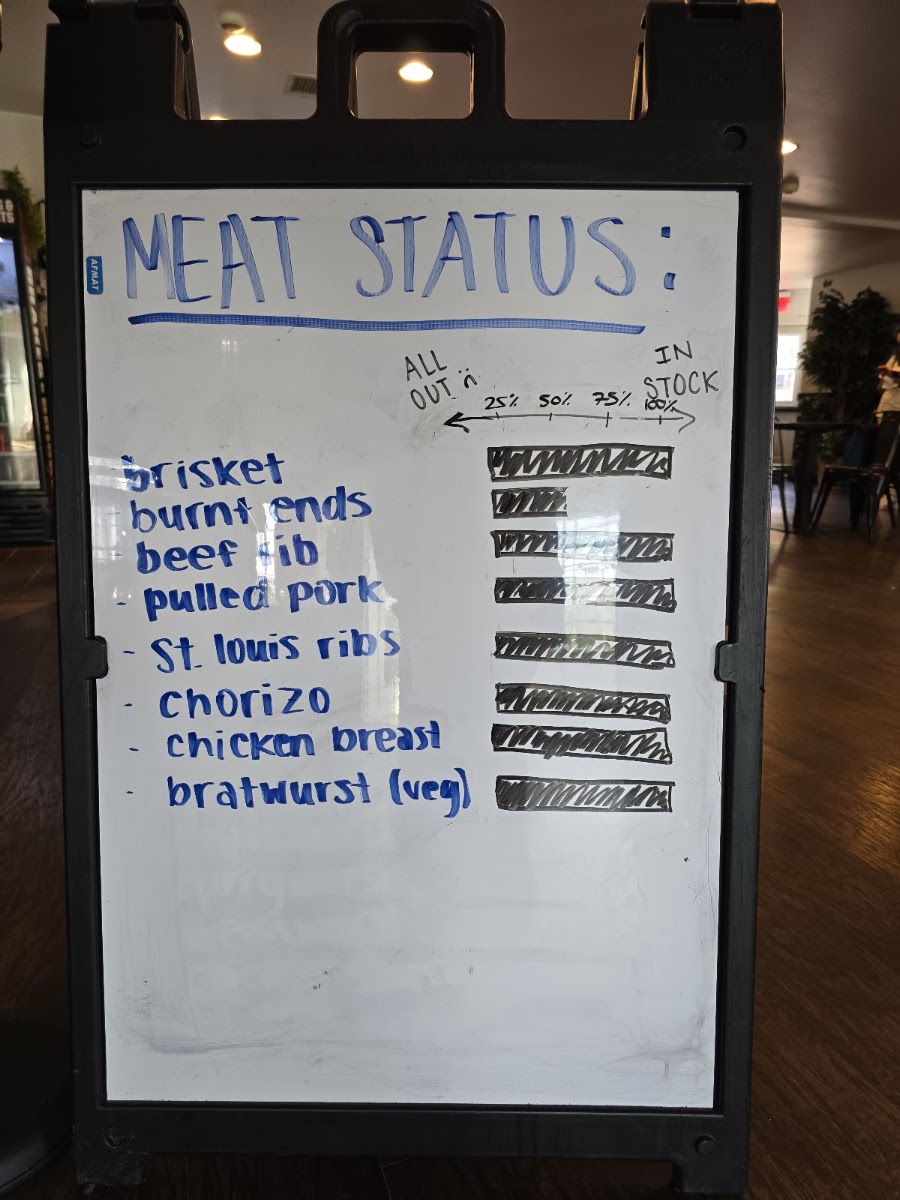 MEAT STATUS:
AFMAT
ALL OUT :(
IN STOCK
25% 50% 75% 100%
brisket
burnt ends
beef rib
- pulled pork
- St. louis ribs
- chorizo
- chicken breast
- bratwurst (veg)